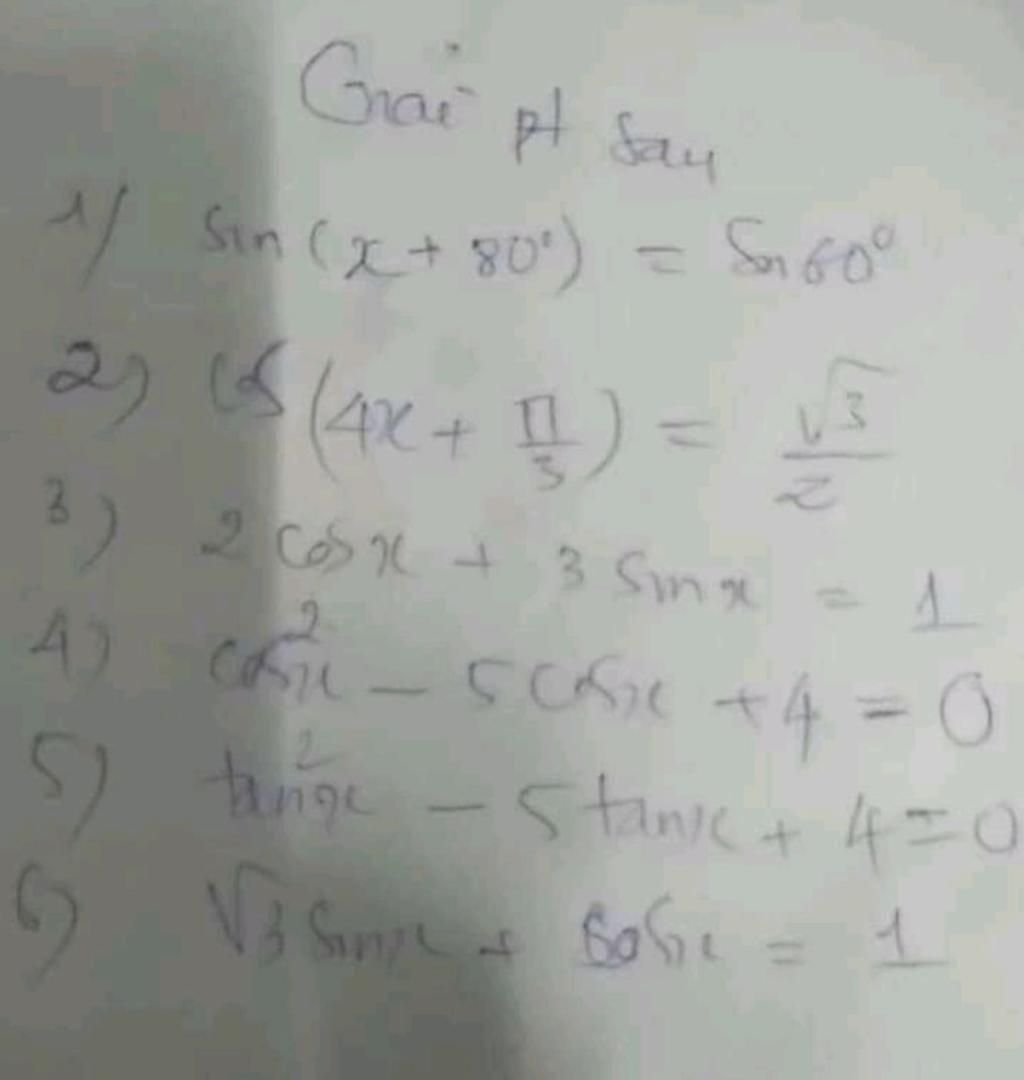 Giải pt sau
1) sin(x + 80°) = Sin 60°
2) cos(4x + π/3) = √3/2
3) 2 cosx + 3 sinx = 1
4) cos²x - 5 cosx + 4 = 0
5) tan²x - 5 tanx + 4 = 0
6) √3 sinx + cosx = 1